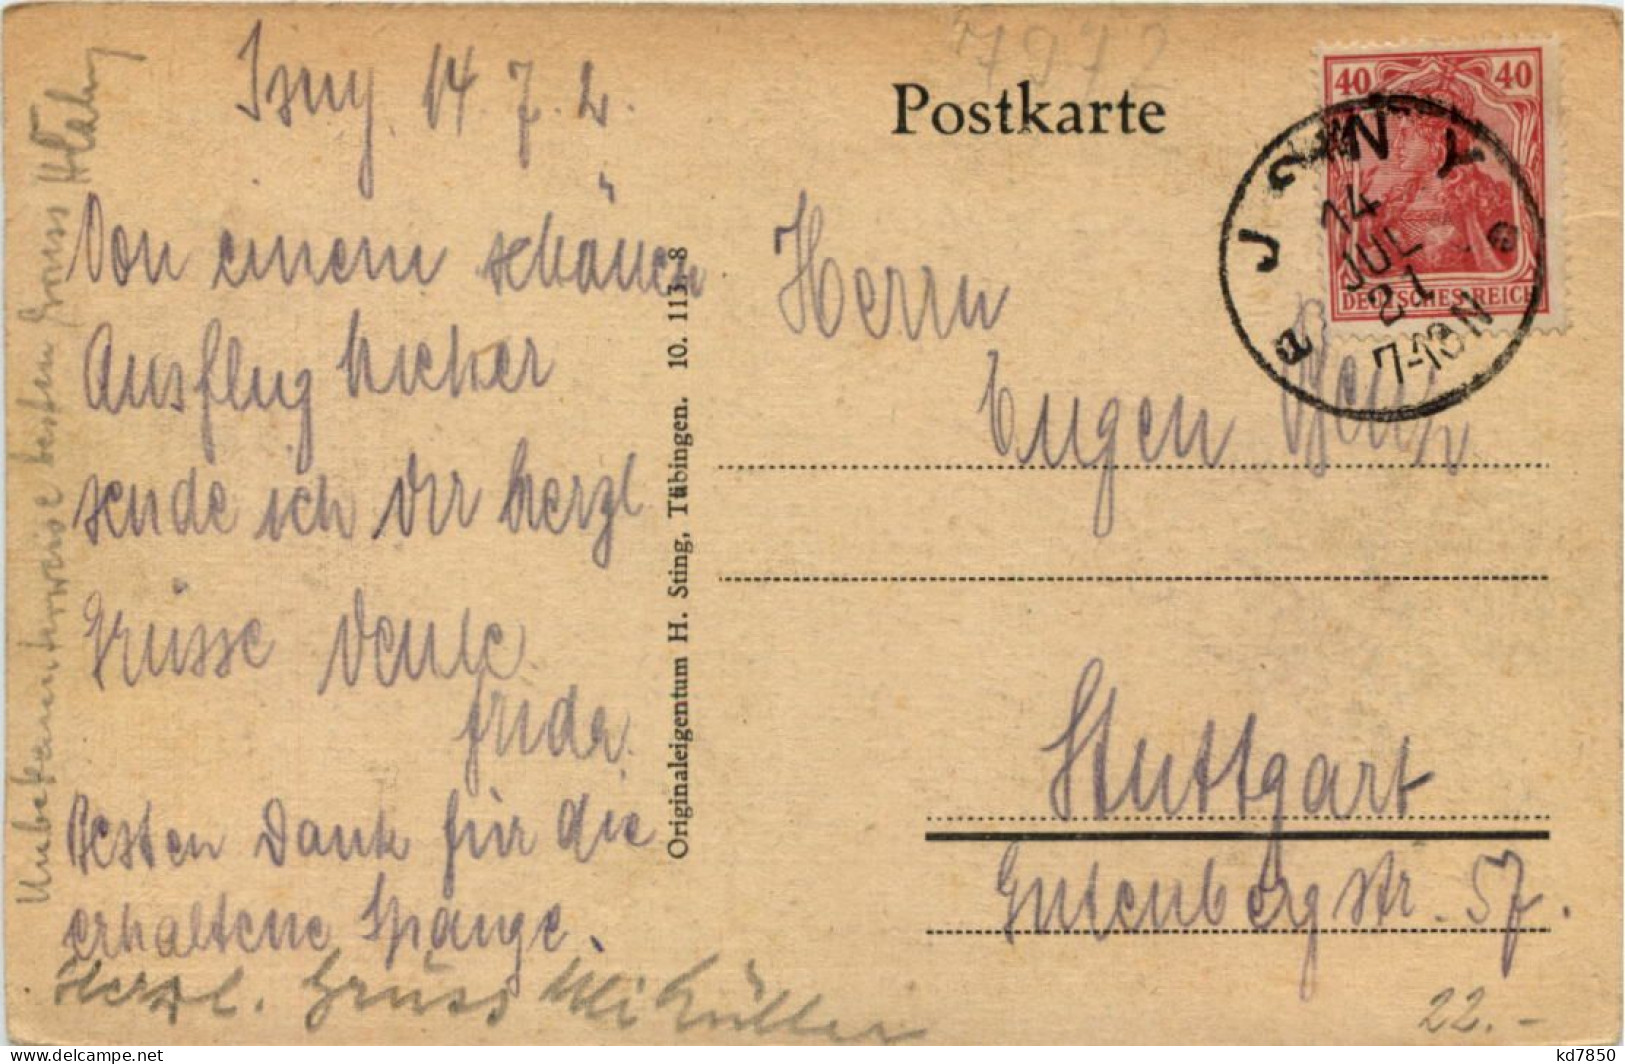 7972
Isny 14.7.2.
Postkarte
40 40
DEUTSCHES REICH
ISNY
14
JUL
21
7-8N
Von einem schönen
Ausflug hieher
sende ich Dir herzl
Grüsse Deine
Frida.
Besten Dank für die
erhaltene Spange.
Herzl. Gruss
Unbekannterweise besten Gruss
Originaleigentum H. Sting, Tübingen. 10. 113-8
Herrn
Eugen
Stuttgart
Gutenbergstr. 57.
22.-
kd7850